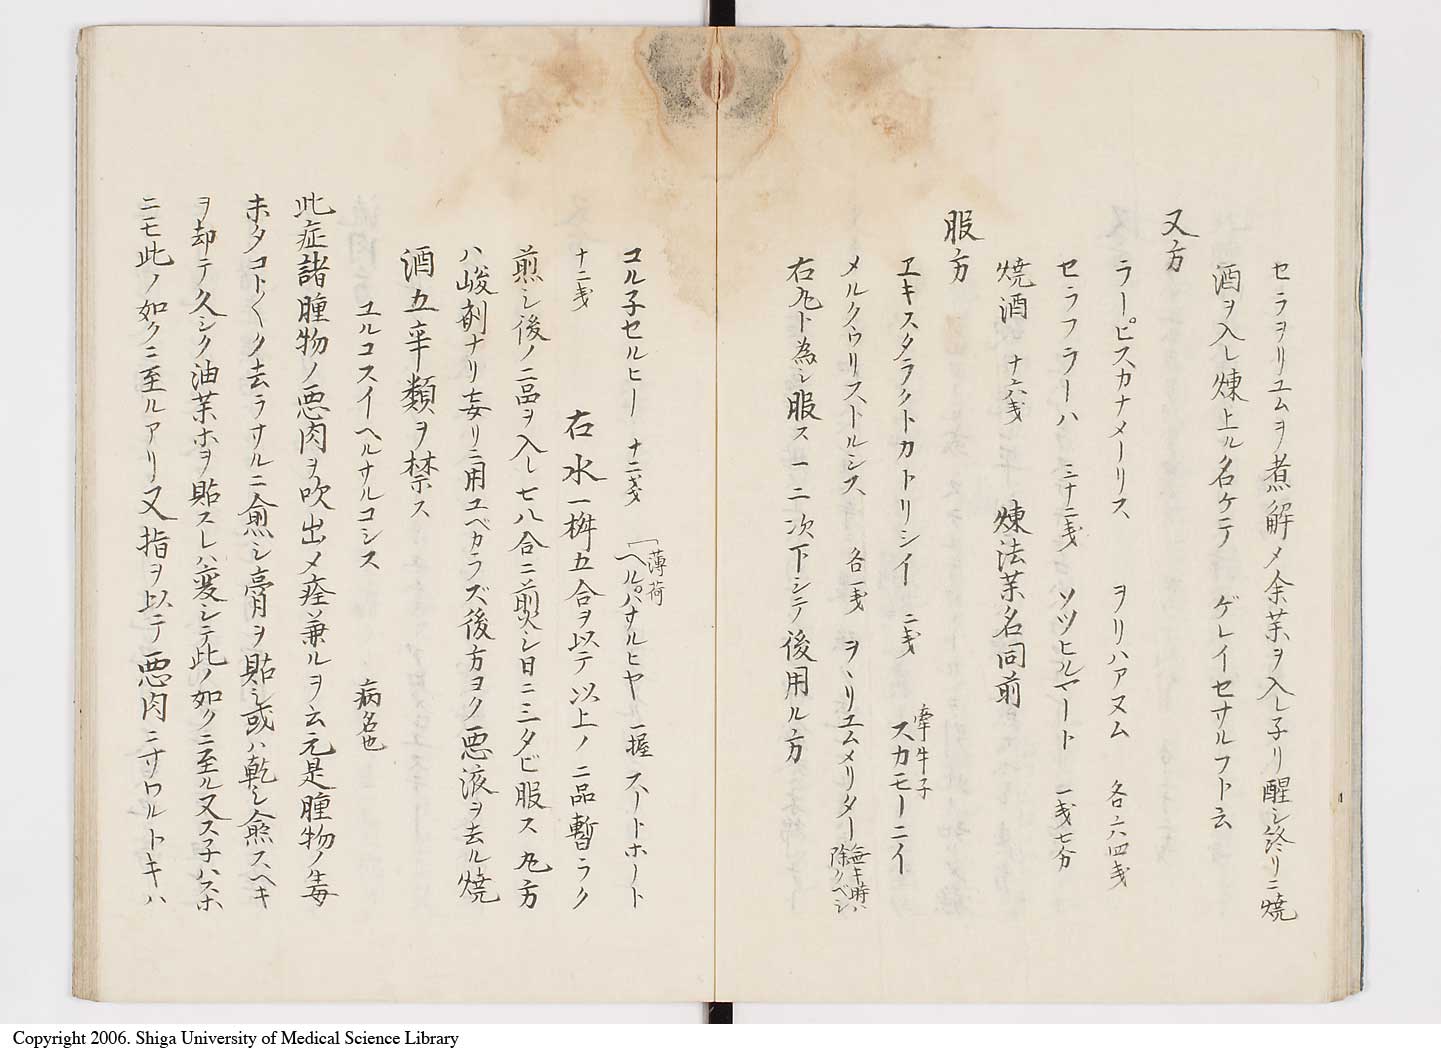 セラヲリユムヲ煮解メ余薬ヲ入レ子リ醒シ終リニ焼
酒ヲ入レ煉上ル名ケテ ゲレイセサルフト云
又方
ラーピスカナメーリス ヲリハアヌム 各六四戔
セラフラーハ 三十二戔 ソツヒルマート 一戔七分
焼酒 十六戔 煉法薬名同前
服方
エキスタラクトカトリシイ 二戔 牽牛子 スカモーニイ
メルクウリストルシス 各一戔 ヲヽリユムメリター 無キ時ハ除クベシ
右丸ト為シ服ス一二次下シテ後用ル方
コル子セルヒー 十二戔 薄荷 ヘルバナルヒヤル 一握 スートホート
十二戔 右水一桝五合ヲ以テ以上ノ二品暫ラク
煎シ後ノ二品ヲ入レ七八合ニ煎シ日ニ三タビ服ス丸方
ハ峻剤ナリ妄リニ用ユベカラズ後方ヨク悪液ヲ去ル焼
酒五辛類ヲ禁ス
ユルコスイヘルナルコシス 病名也
此症諸腫物ノ悪肉ヲ吹出メ痊兼ルヲ云元是腫物ノ毒
未タコト〱ク去ラサルニ愈シ膏ヲ貼シ或ハ乾シ愈スヘキ
ヲ却テ久シク油薬ホヲ貼スレハ変シテ此ノ如クニ至ル又ス子ハスホ
ニモ此ノ如クニ至ルアリ又指ヲ以テ悪肉ニサワルトキハ
Copyright 2006. Shiga University of Medical Science Library